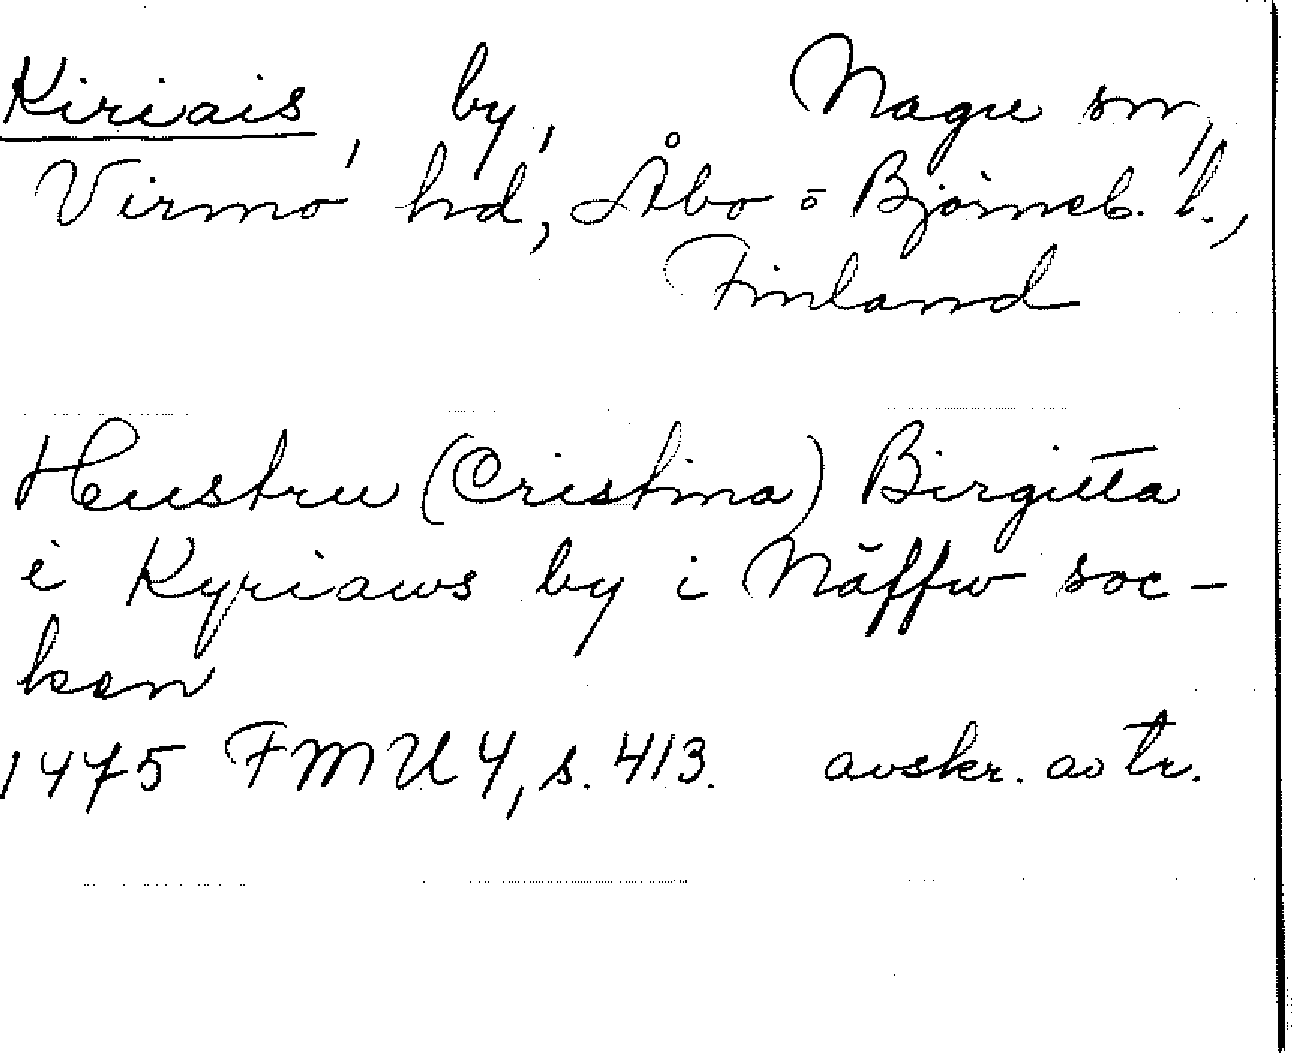 Kiriais, by, Nagu sn,
Virmo hd, Åbo o Björneb. l.,
Finland
Hustru (Cristina) Birgitta
i Kyriaws by i Näffw soc-
ken
1475 FMU 4, s. 413. avskr. av tr.